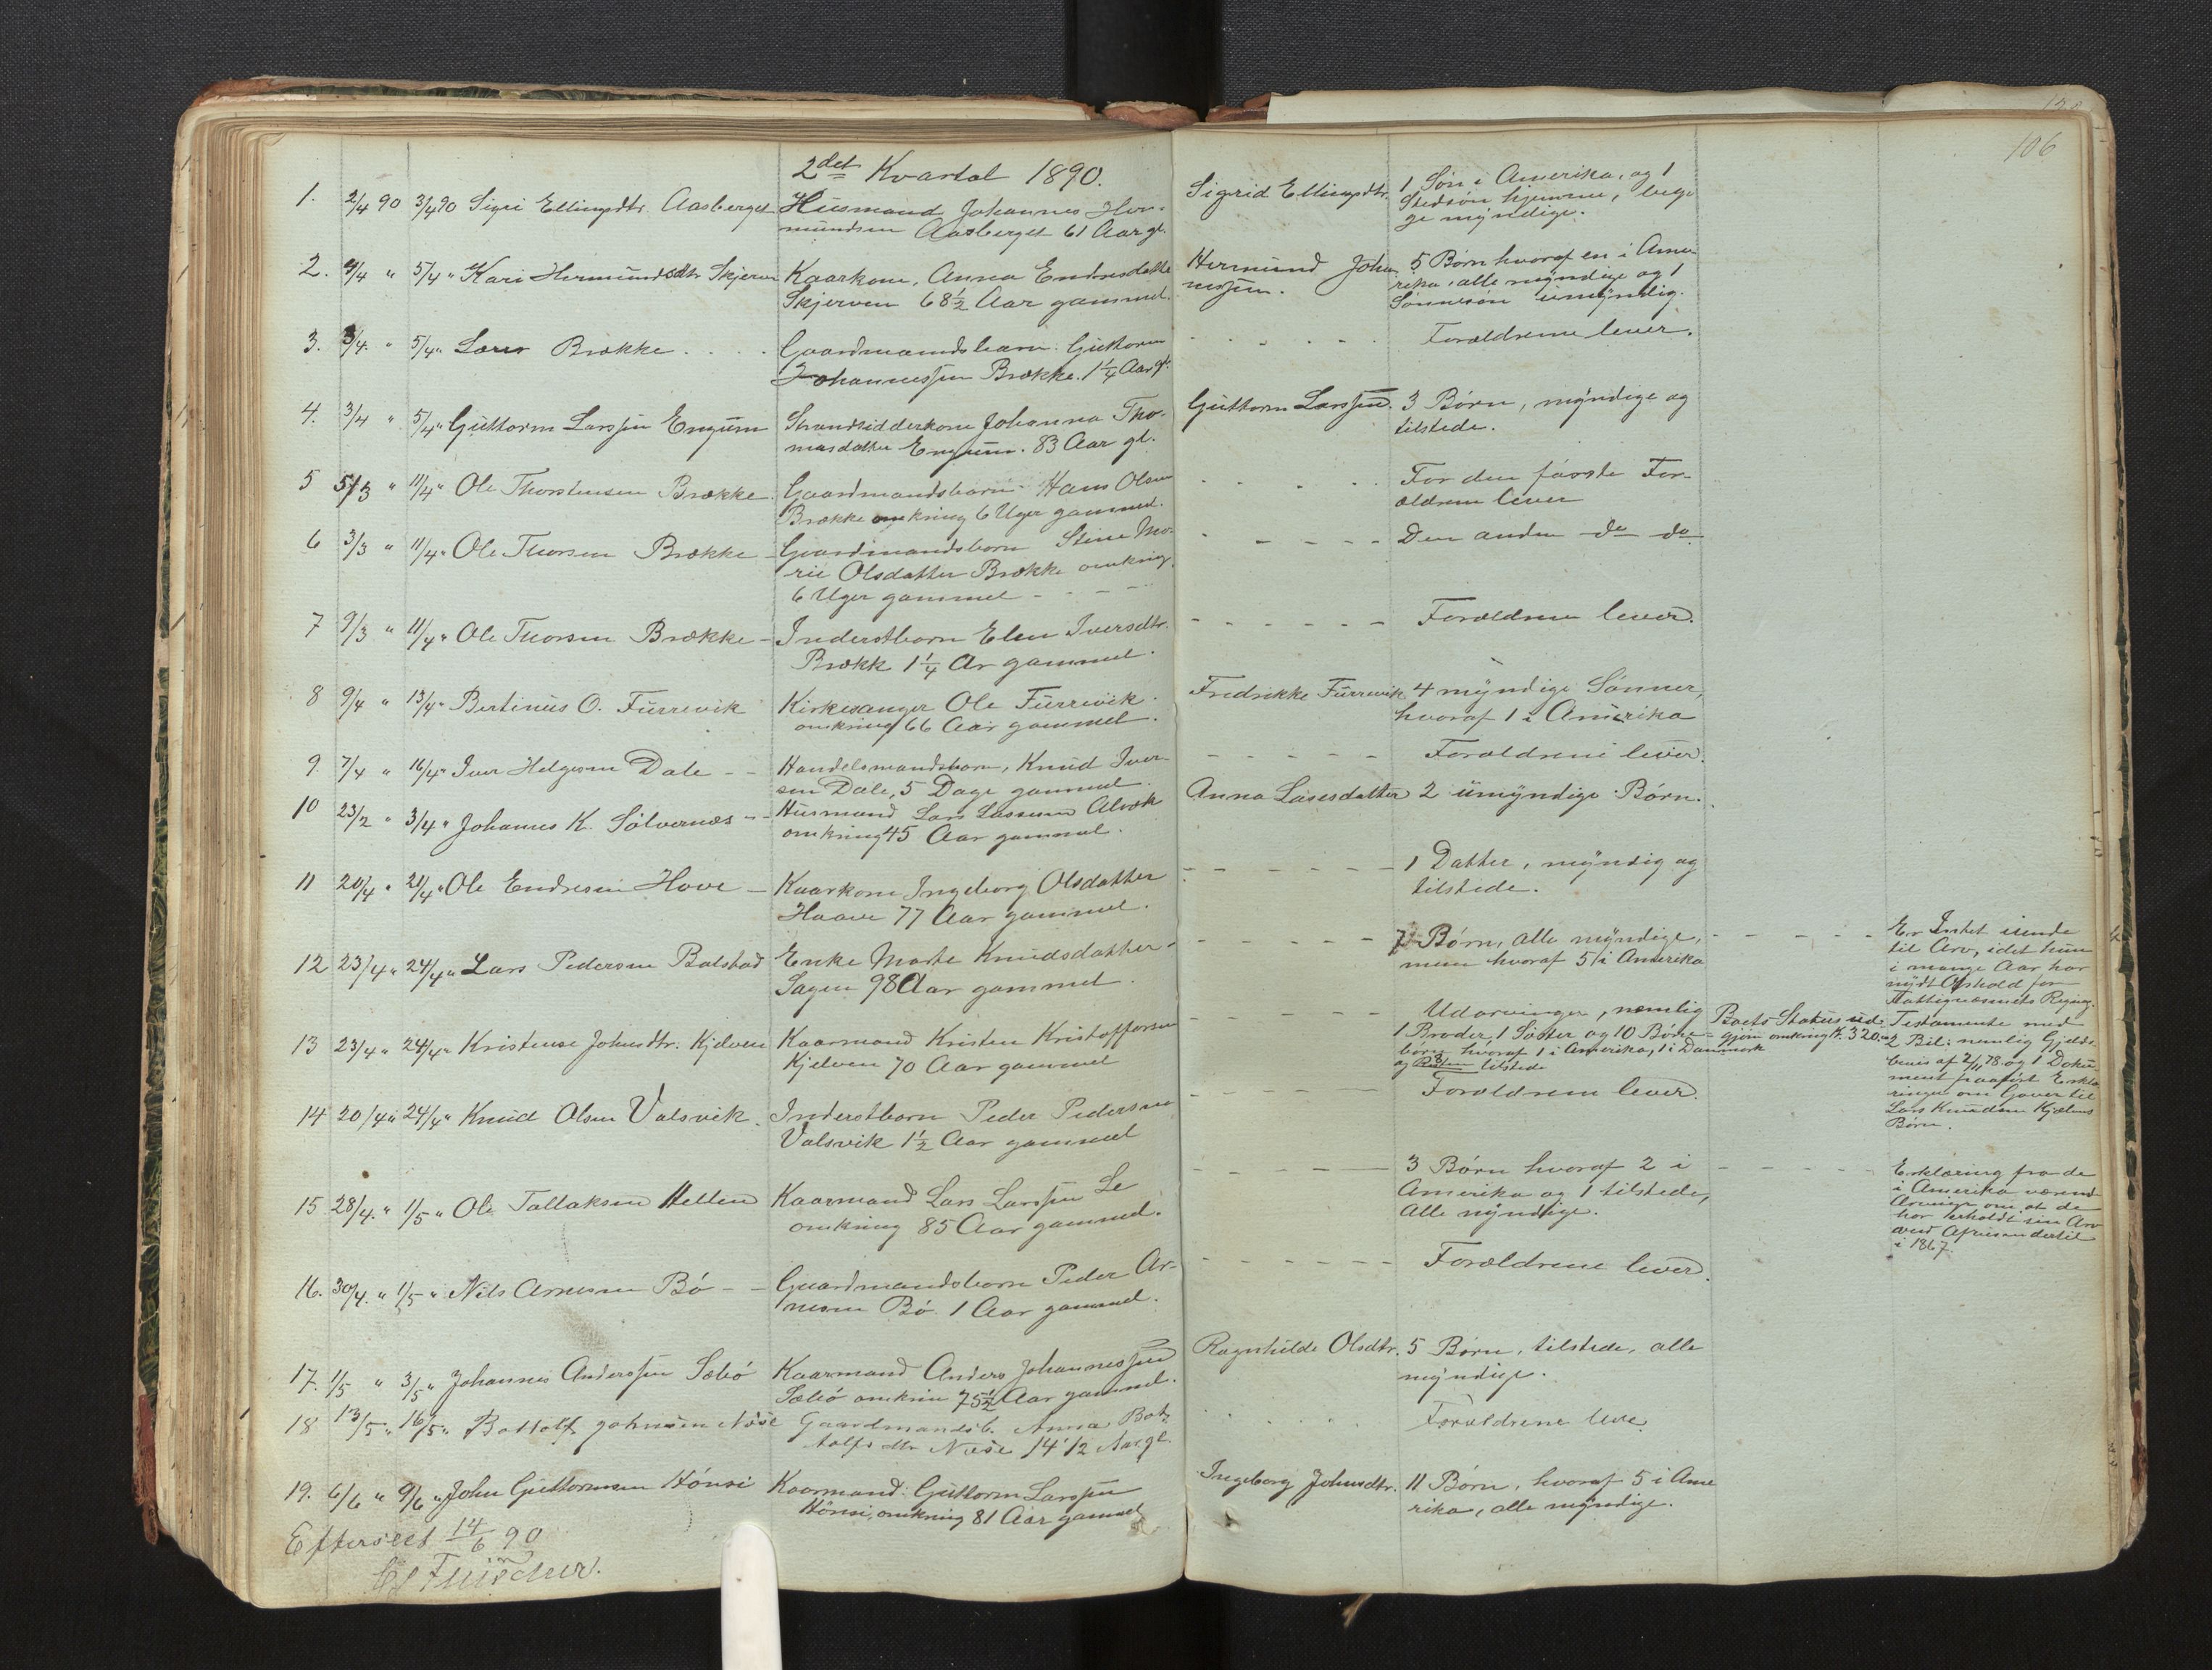 106
2det Kvartal 1890.
1. 2/4 90 3/4 90 Sigri Ellingsdtr. Aasberget Husmand Johannes Her- Sigrid Ellingsdtr. 1 Søn i Amerika, og 1
mundsen Aasberget 61 Aar gl. Stedsøn hjemme, beg-
ge myndige.
2. 4/4 " 5/4 " Kari Hermundsdtr Skjerven Kaarkone, Anna Endresdatter Hermund Joha- 5 Børn hvoraf en i Ame-
Skjerven 68 1/2 Aar gammel. nessen. rika, alle myndige og 1
Sønnesøn umyndig.
3. 3/4. " 5/4 " Lars Brække . . . . Gaardmandsbarn: Guttorm . . . . . . Forældrene lever.
Johannessen Brække. 1 1/4 Aar gl.
4. 3/4 " 5/4 " Guttorm Larssen Engum Strandsidderkone Johanna Tho- Guttorm Larssen. 3 Børn, myndige og
masdatter Engum. 83 Aar gl. tilstede.
5 5/3 " 11/4 " Ole Thorstensen Brække. Gaardmandsbarn - Hans Olsen . . . . . For den første For-
Brække omkring 6 Uger gammel. ældrene lever
6 3/3 " 11/4 " Ole Thorsen Brække - Gaardmandsbarn Stine Ma- - - - - - Den anden do do
rie Olsdatter Brække omkring
6 Uger gammel - - - -
7 9/3 " 11/4 " Ole Thorsen Brække - Inderstbarn Elen Iversdtr. - - - - - - Forældrene lever.
Brækk 1 1/4 Ar gammel.
8 9/4 " 13/4 " Bertinus O. Furrevik Kirkesanger Ole Furrevik Fredrikke Furrevik 4 myndige Sønner,
omkring 66 Aar gammel. hvoraf 1 i Amerika
9. 7/4 " 16/4 " Iver Helgesen Dale - - Handelsmandsbarn, Knud Iver- - - - - - Forældrene lever.
sen Dale, 5 Dage gammel.
10 23/2 " 3/4 " Johannes K. Sölvernæs - - Husmand Lars Lassesen Alvæk Anna Lassesdatter 2 umyndige Børn.
omkring 45 Aar gammel.
11 20/4 " 21/4 " Ole Endresen Hove - Kaarkone Ingeborg Olsdatter - - - - - - 1 Datter, myndig og
Haave 77 Aar gammel. tilstede.
12 23/4 " 24/4 " Lars Pedersen Balstad Enke Marte Knudsdatter - - - - - - 7 Børn, alle myndige, - - - - Er Intet iende
Sagen 98 Aar gammel. men hvoraf 5 i Amerika til Arv, idet hun
i mange Aar har
nydt Ophold for
Fattigvæsenets Regning.
13 23/4 " 24/4 " Kristense Johnsdtr. Kjelven Kaarmand Kristen Kristoffersen - - - - - Udarvinger, nemlig Boets Status ud- Testamente med
Kjelven 70 Aar gammel 1 Broder, 1 Søster og 10 Børne- gjør omkring K. 320.- 2 Bil: nemlig Gjelds-
børn hvoraf 1 i Amerika, 1 i Danmark bevis af 2/11 78 og 1 Doku-
og 8 tilstede ment paaført Erklæ-
ringer om Gaver til
Lars Knudsen Kjelvens
Børn.
14 20/4 " 24/4 " Knud Olsen Valsvik. Inderstbarn Peder Pedersen - - - - Forældrene lever.
Valsvik 1 1/2 Aar gammel
15 28/4. " 1/5 " Ole Tallaksen Hellen Kaarmand Lars Larssen Le - - - - - 3 Børn hvoraf 2 i - - - - Erklæring fra de
omkring 85 Aar gammel. Amerika og 1 tilstede, i Amerika værende
Alle myndige. Arvinger om at de
har erholdt sin Arv
ved Afreisen dertil
i 1867.
16. 30/4. " 1/5 " Nils Arnesen Bö - - Gaardmandsbarn Peder Ar- - - - - - - Forældrene lever.
nesen Bö. 1 Aar gammel.
17. 1/5 " 3/5 " Johannes Anderssen Sæbö Kaarmand Anders Johannessen Ragnhilde Olsdtr. 5 Børn, tilstede, alle
Sæbö omkring 75 1/2 Aar gammel. myndige.
18 13/5 " 16/5 " Bottolf Johnsen Næse Gaardmandsb. Anna Bot- . . . . Forældrene leve.
tolfsdtr Næse 14 1/2 Aar gl.
19. 6/6 " 9/6 " John Guttormsen Hönsi Kaarmand: Guttorm Larssen Ingeborg Johnsdtr. 11 Børn, hvoraf 5 i Ame
Hönsi, omkring 81 Aar gammel rika, alle myndige.
Efterseet 14/6 90